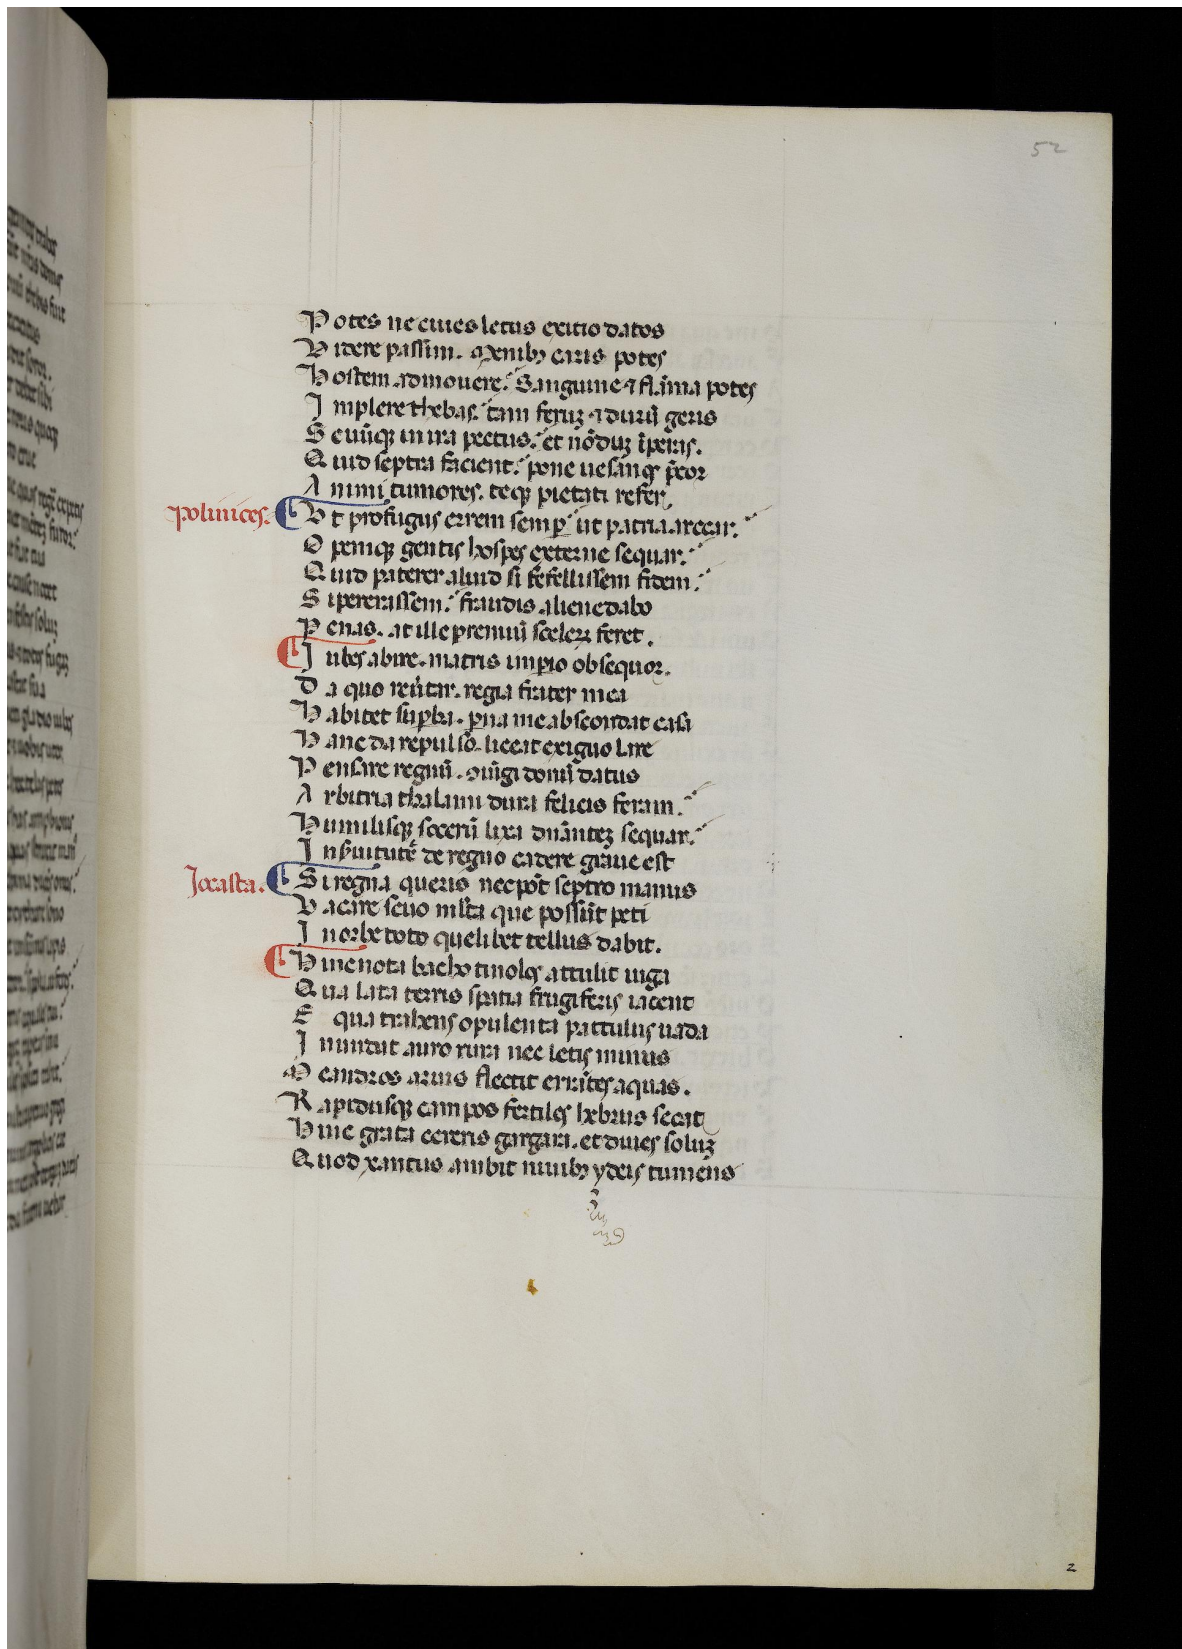 52
Potes ne ciues letus exitio datos
Videre passim. Menibꝫ caris potes
Hostem admouere. Sanguine ⁊ flāma potes
Implere thebas. tam feruꝫ ⁊ durū geris
Seuūqꝫ in ira pectus. et nōduꝫ īperas.
Quid septra facient. pone uesanos p̄cor
Animi tumores. teqꝫ pietati refer.
Polinices. Vt profugus errem semp̱ ut patria arcear.
Openqꝫ gentis hospes externe sequar.
Quid paterer aliud si fefellissem fidem.
Si peierassem. fraudis aliene dabo
Penas. at ille premiū sceleꝝ feret.
Iubes abire. matris imp̱io obsequor.
Da quo reūtar. regia frater mea
Habitet sup̱ba. p̱ua me abscondat casa
Hanc da repulso. liceat exiguo lare
Pensare regnū. coniūgi donū datus
Arbitria thalami dura felicis feram.
Humilisqꝫ socerū lixa dn̄anteꝫ sequar.
In s̄uitutē de regno cadere graue est
Jocasta. Si regna queris nec pōt septro manus
Vacare seuo mĺta que possūt peti
In orbe toto quelibet tellus dabit.
Hinc nota bacho tmolos attulit iuga
Qua lata terris spatia frugiferis iacent
E qua trahens opulenta pattulus uada
Inundat auro rura nec letis minus
Meandros aruis flectit errātes aquas.
Rapidusqꝫ campos fertiles hebrus secat
Hinc grata cereris gargara. et diues soluꝫ
Quod xantus ambit niuibꝫ ydeis tumens
2